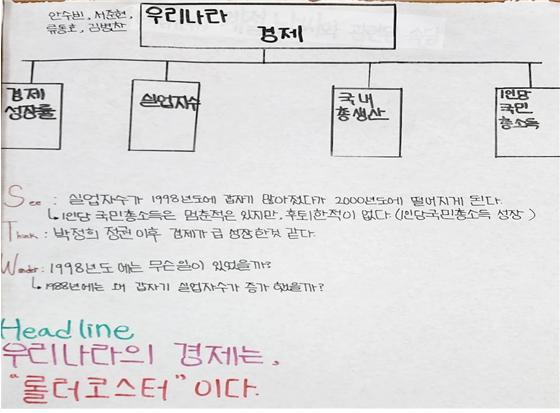 안수빈, 서준현,
류동호, 김병찬
우리나라
경제
경제
성장률
실업자수
국내
총생산
1인당
국민
총소득
See : 실업자수가 1998년도에 갑자기 많아졌다가 2000년도에 떨어지게 된다.
↳1인당 국민총소득은 멈춘적은 있지만, 후퇴한적이 없다. (1인당국민총소득 성장)
Think : 박정희 정권 이후 경제가 급 성장한것 같다.
Wonder : 1998년도 에는 무슨일이 있었을까?
↳1988년에는 왜 갑자기 실업자수가 증가 하였을까?
Headline
우리나라의 경제는,
"롤러코스터" 이다.